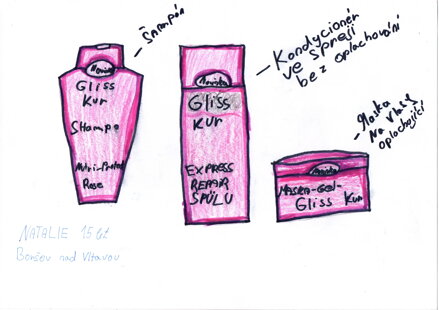 Šampón
Gliss
Kur
Shampo
Nutri-Protect
Rose
Kondycionér
ve spreji
bez oplachování
Gliss
Kur
EXPRESS
REPAIR
SPÜLU
Maska
na vlasy
oplachující
MASKA-GEL-
Gliss Kur
NATALIE 15 let
Boršov nad Vltavou